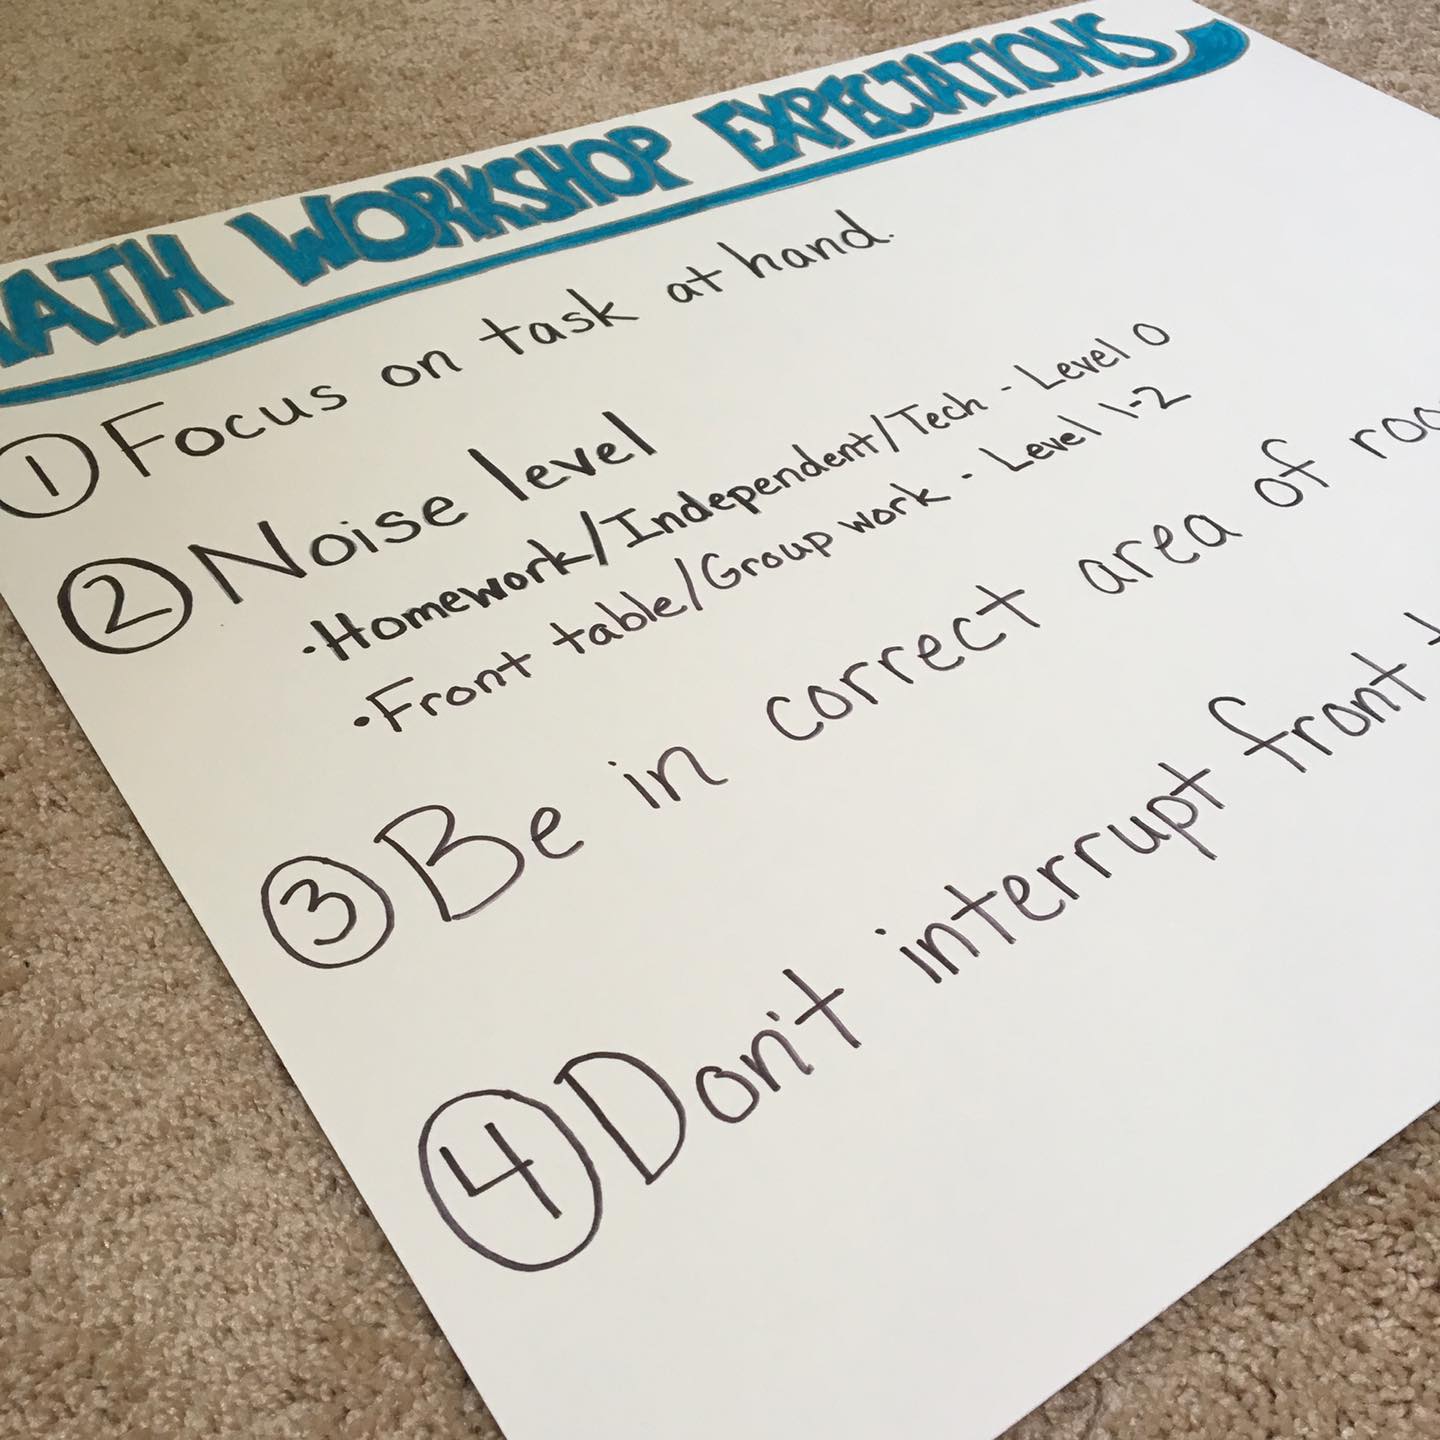 MATH WORKSHOP EXPECTATIONS
① Focus on task at hand.
② Noise level
• Homework/Independent/Tech - Level 0
• Front table/Group work - Level 1-2
③ Be in correct area of roo
④ Don't interrupt front t